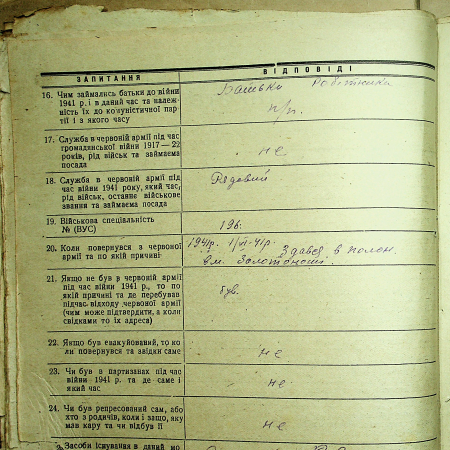 ЗАПИТАННЯ
ВІДПОВІДІ
16. Чим займались батьки до війни
1941 р. і в даний час та належ-
ність їх до комуністичної пар-
тії і з якого часу
Батьки Робітники
п/п.
17. Служба в червоній армії під час
громадянської війни 1917—22
років, рід військ та займаема
посада
не
18. Служба в червоній армії під
час війни 1941 року, який час,
рід військ, останнє військове
звання та займаема посада
Рядовий
19. Військова спеціяльність
№ (ВУС)
196.
20. Коли повернувся з червоної
армії та по якій причині
1941р.
Здався в полон
в м. Золотоноші.
21. Якщо не був в червоній армії
під час війни 1941 р., то по
якій причині та де перебував
підчас відходу червоної армії
(чим може підтвердити, а коли
свідками то їх адреса)
був.
22. Якщо був евакуйований, то ко
ли повернувся та звідки саме
не
23. Чи був в партизанах під час
війни 1941 р. та де саме і
який час
не
24. Чи був репресований сам, або
хто з родичів, коли і защо, яку
мав кару та чи відбув її
не
Засоби існування в даний мо